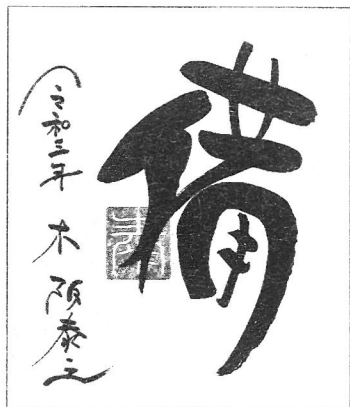 備
令和三年 木 泰之